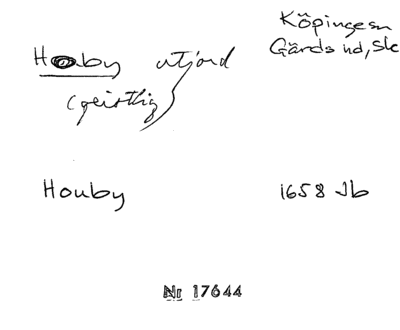 Köpinge sn
Gärds hd, Sk
Hoby utjord
(geistlig)
Houby 1658 Jb
Nr 17644